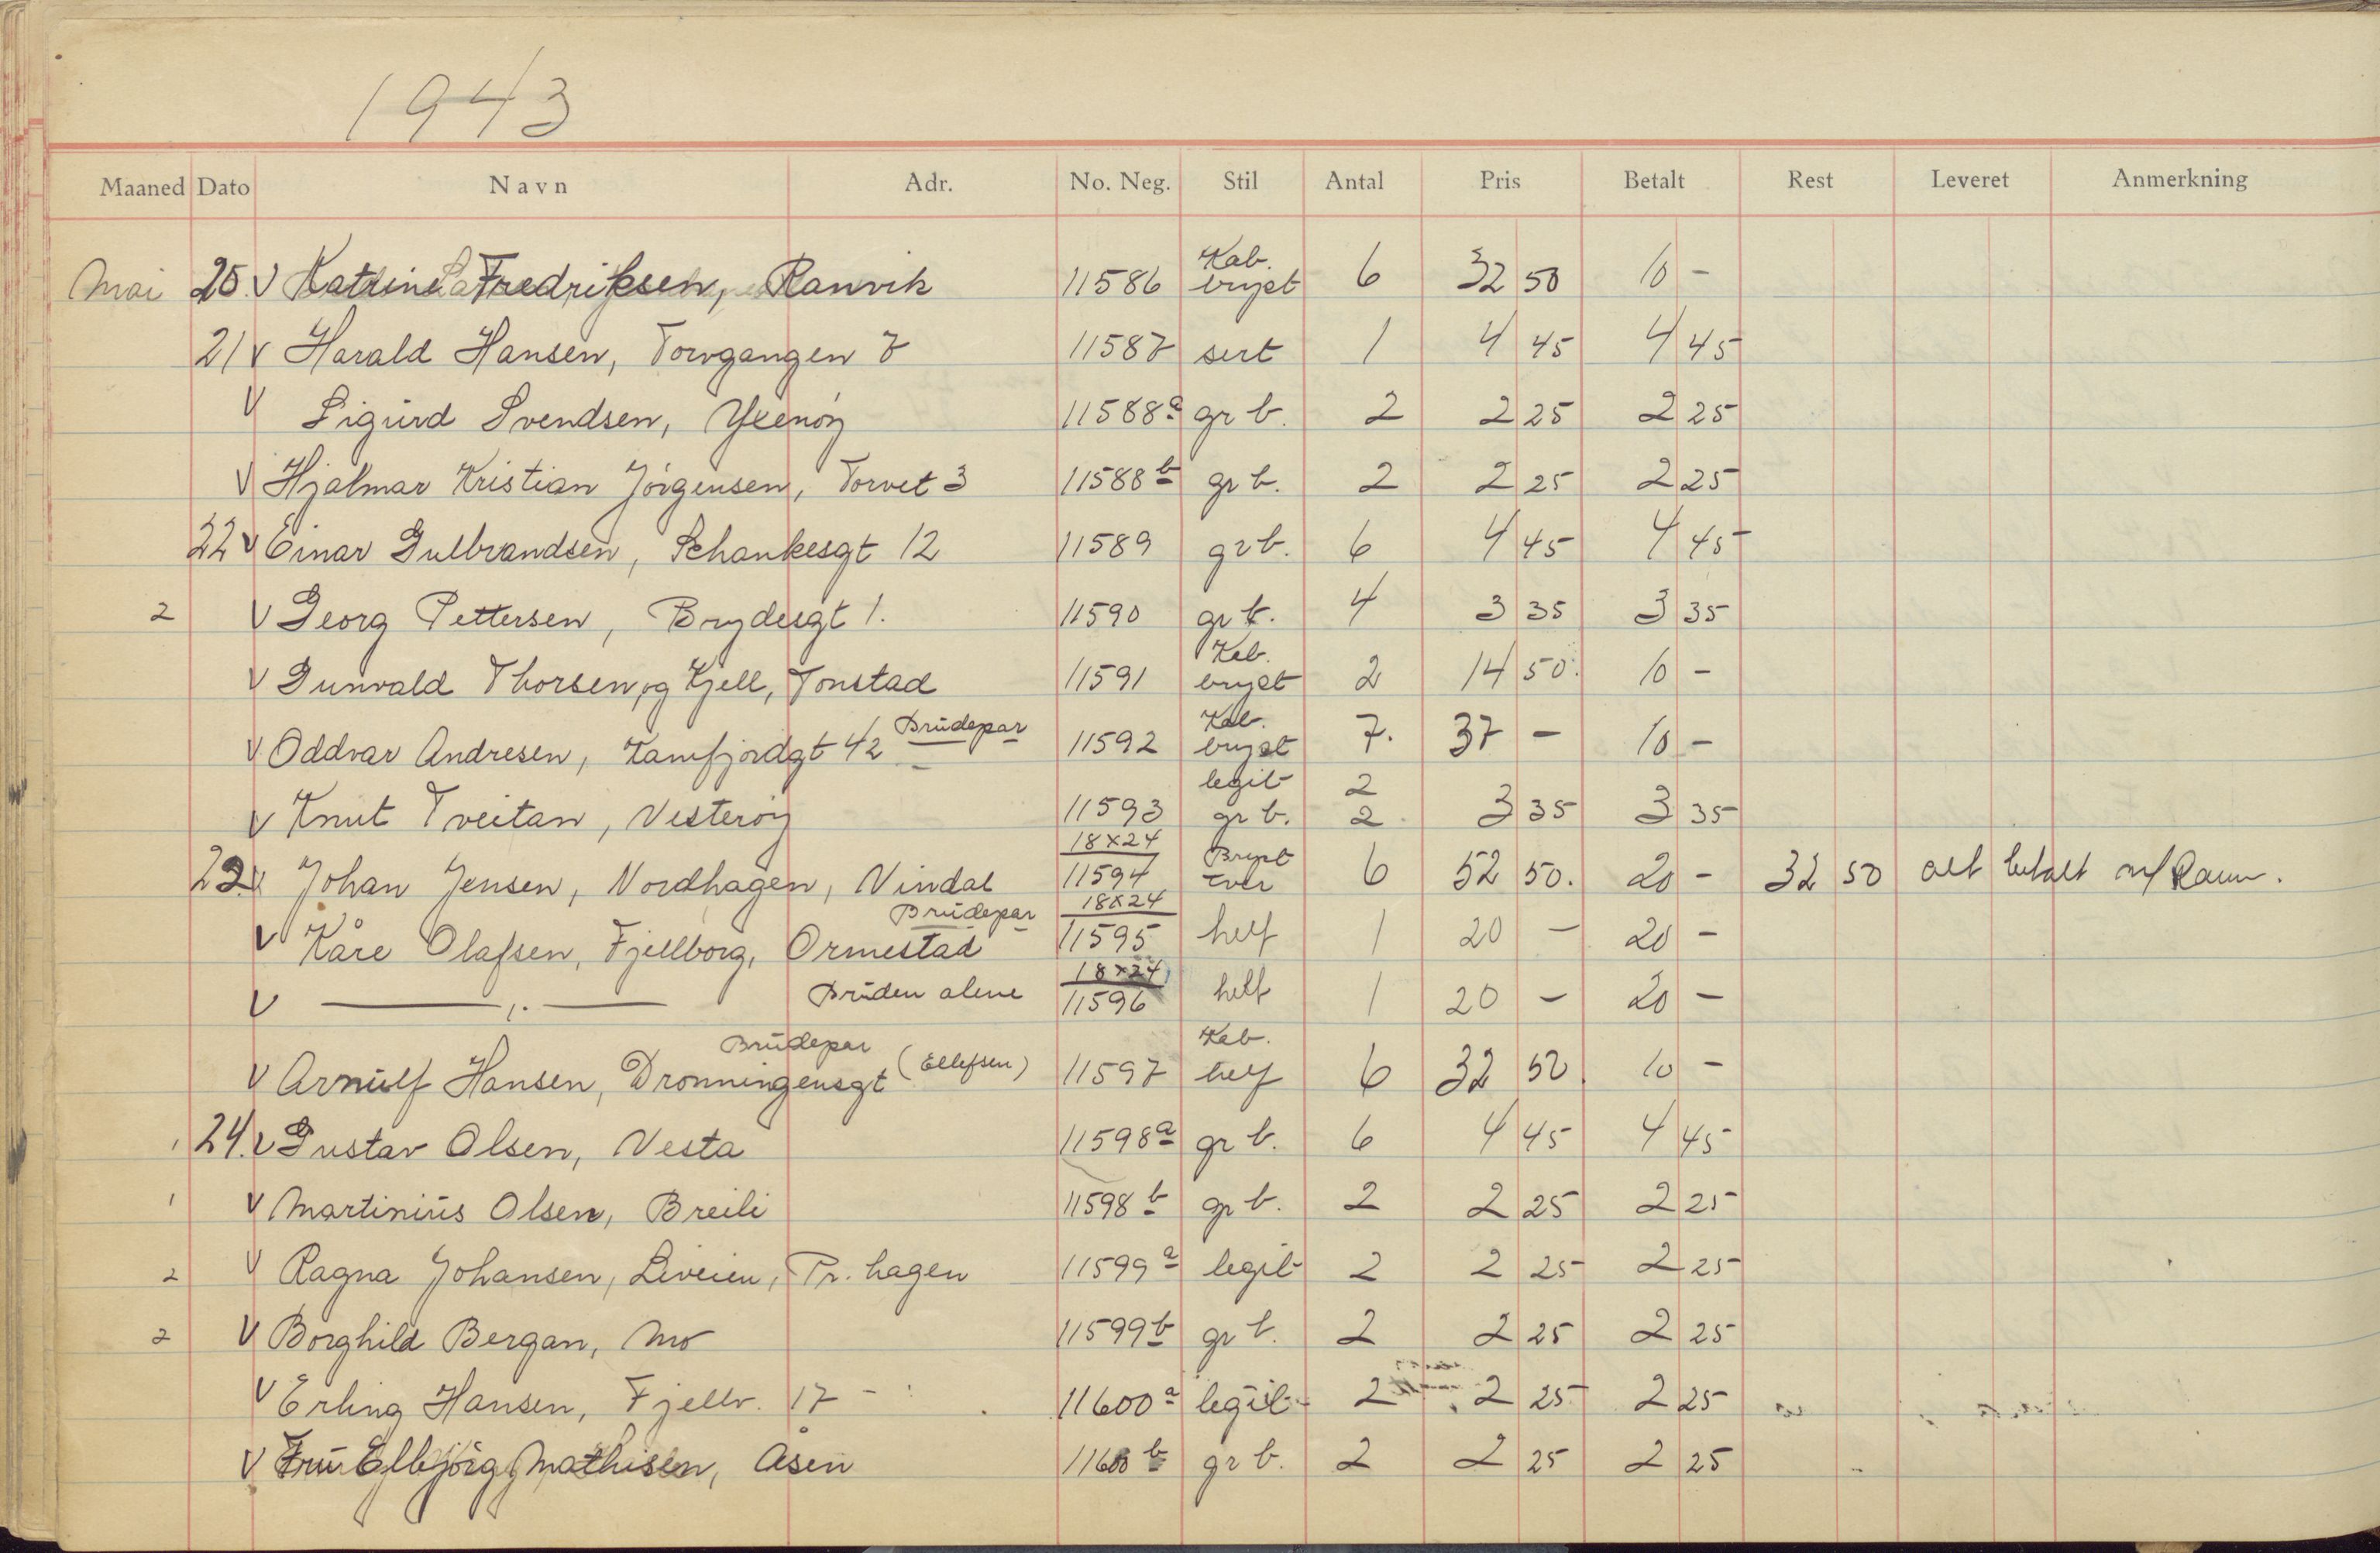 1943
Maaned Dato Navn Adr. No. Neg. Stil Antal Pris Betalt Rest Leveret Anmerkning
Kab.
Mai 20. V Katrine Fredriksen, Ranvik 11586 bryst 6 32 50 10 -
21 V Harald Hansen, Torvgangen 7 11587 sert 1 4 45 4 45
V Sigurd Svendsen, Yxenøy 11588 a gr b. 2 2 25 2 25
V Hjalmar Kristian Jörgensen, Torvet 3 11588 b gr b. 2 2 25 2 25
22 V Einar Gulbrandsen, Schankesgt 12 11589 gr b. 6 4 45 4 45
2 V Georg Pettersen, Brydesgt 1. 11590 gr b. 4 3 35 3 35
Kab.
V Gunvald Thorsen, og Kjell, Tonstad 11591 bryst 2 14 50. 10 -
Brudepar Kab.
V Oddvar Andresen, Kamfjordgt 42 11592 bryst 7. 37 - 10 -
legit 2
V Knut Tveitan, Vesterøy 11593 gr b. 2 3 35 3 35
18x24 Bryst
22. V Johan Jensen, Nordhagen, Vindal 11594 tver 6 52 50. 20 - 32 50 alt betalt
Brudepar 18x24
V Kåre Olafsen, Fjellborg, Ormestad 11595 helf 1 20 - 20 -
18x24
V —〃— Bruden alene 11596 helf 1 20 - 20 -
Brudepar Kab.
V Arnulf Hansen, Dronningensgt (Ellefsen) 11597 helf 6 32 50. 10 -
1 24. V Gustav Olsen, Vesta 11598 a gr b. 6 4 45 4 45
1 V Martinius Olsen, Breili 11598 b gr b. 2 2 25 2 25
2 V Ragna Johansen, Liveien, Pr. hagen 11599 a legit 2 2 25 2 25
2 V Borghild Bergan, Mo 11599 b gr b. 2 2 25 2 25
V Erling Hansen, Fjellv. 17 - 11600 a legit 2 2 25 2 25
V Fru Elbjörg Mathisen, Åsen 11600 b gr b. 2 2 25 2 25